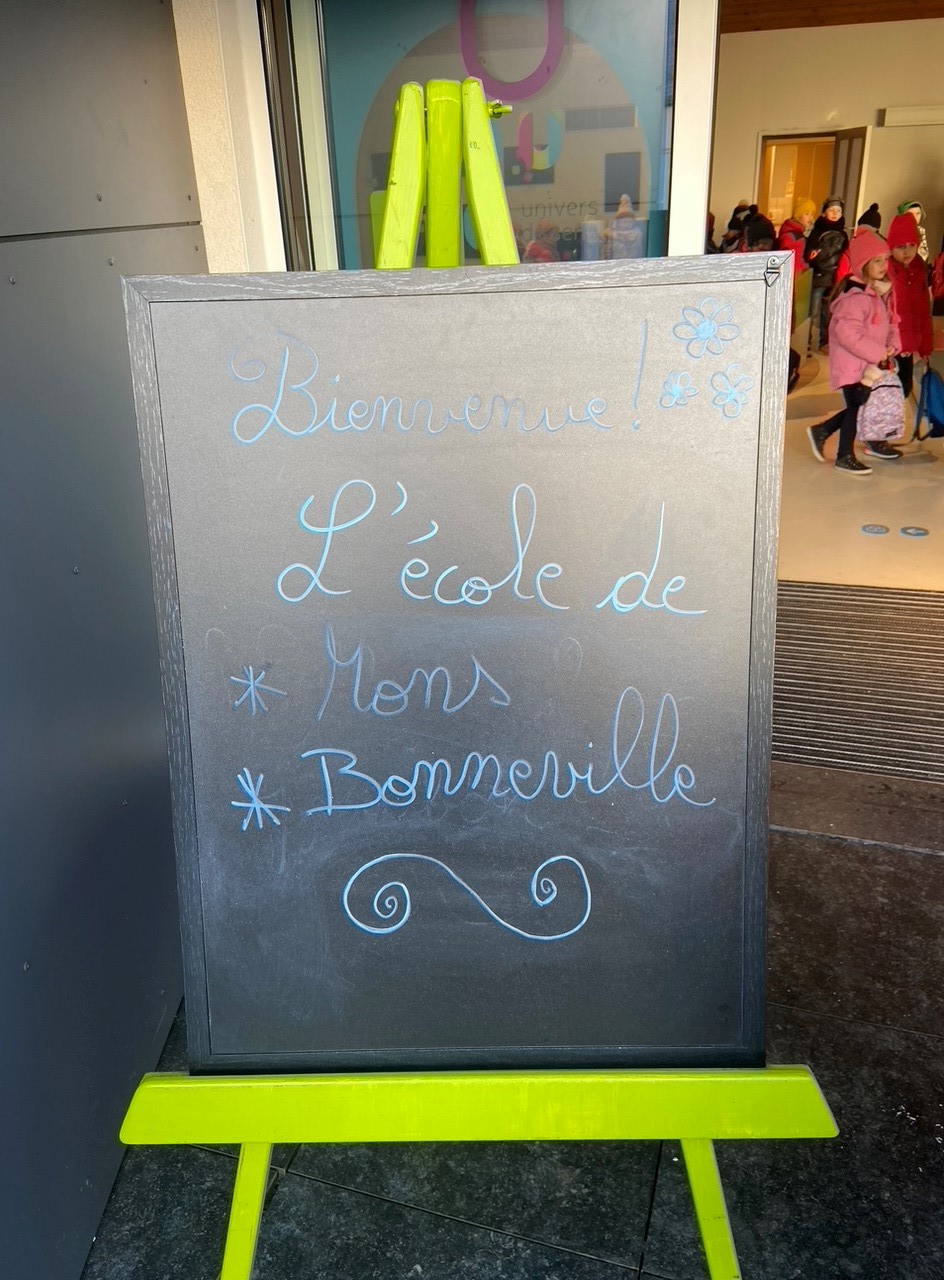 Bienvenue!
L'école de
* Mons
* Bonneville
univers